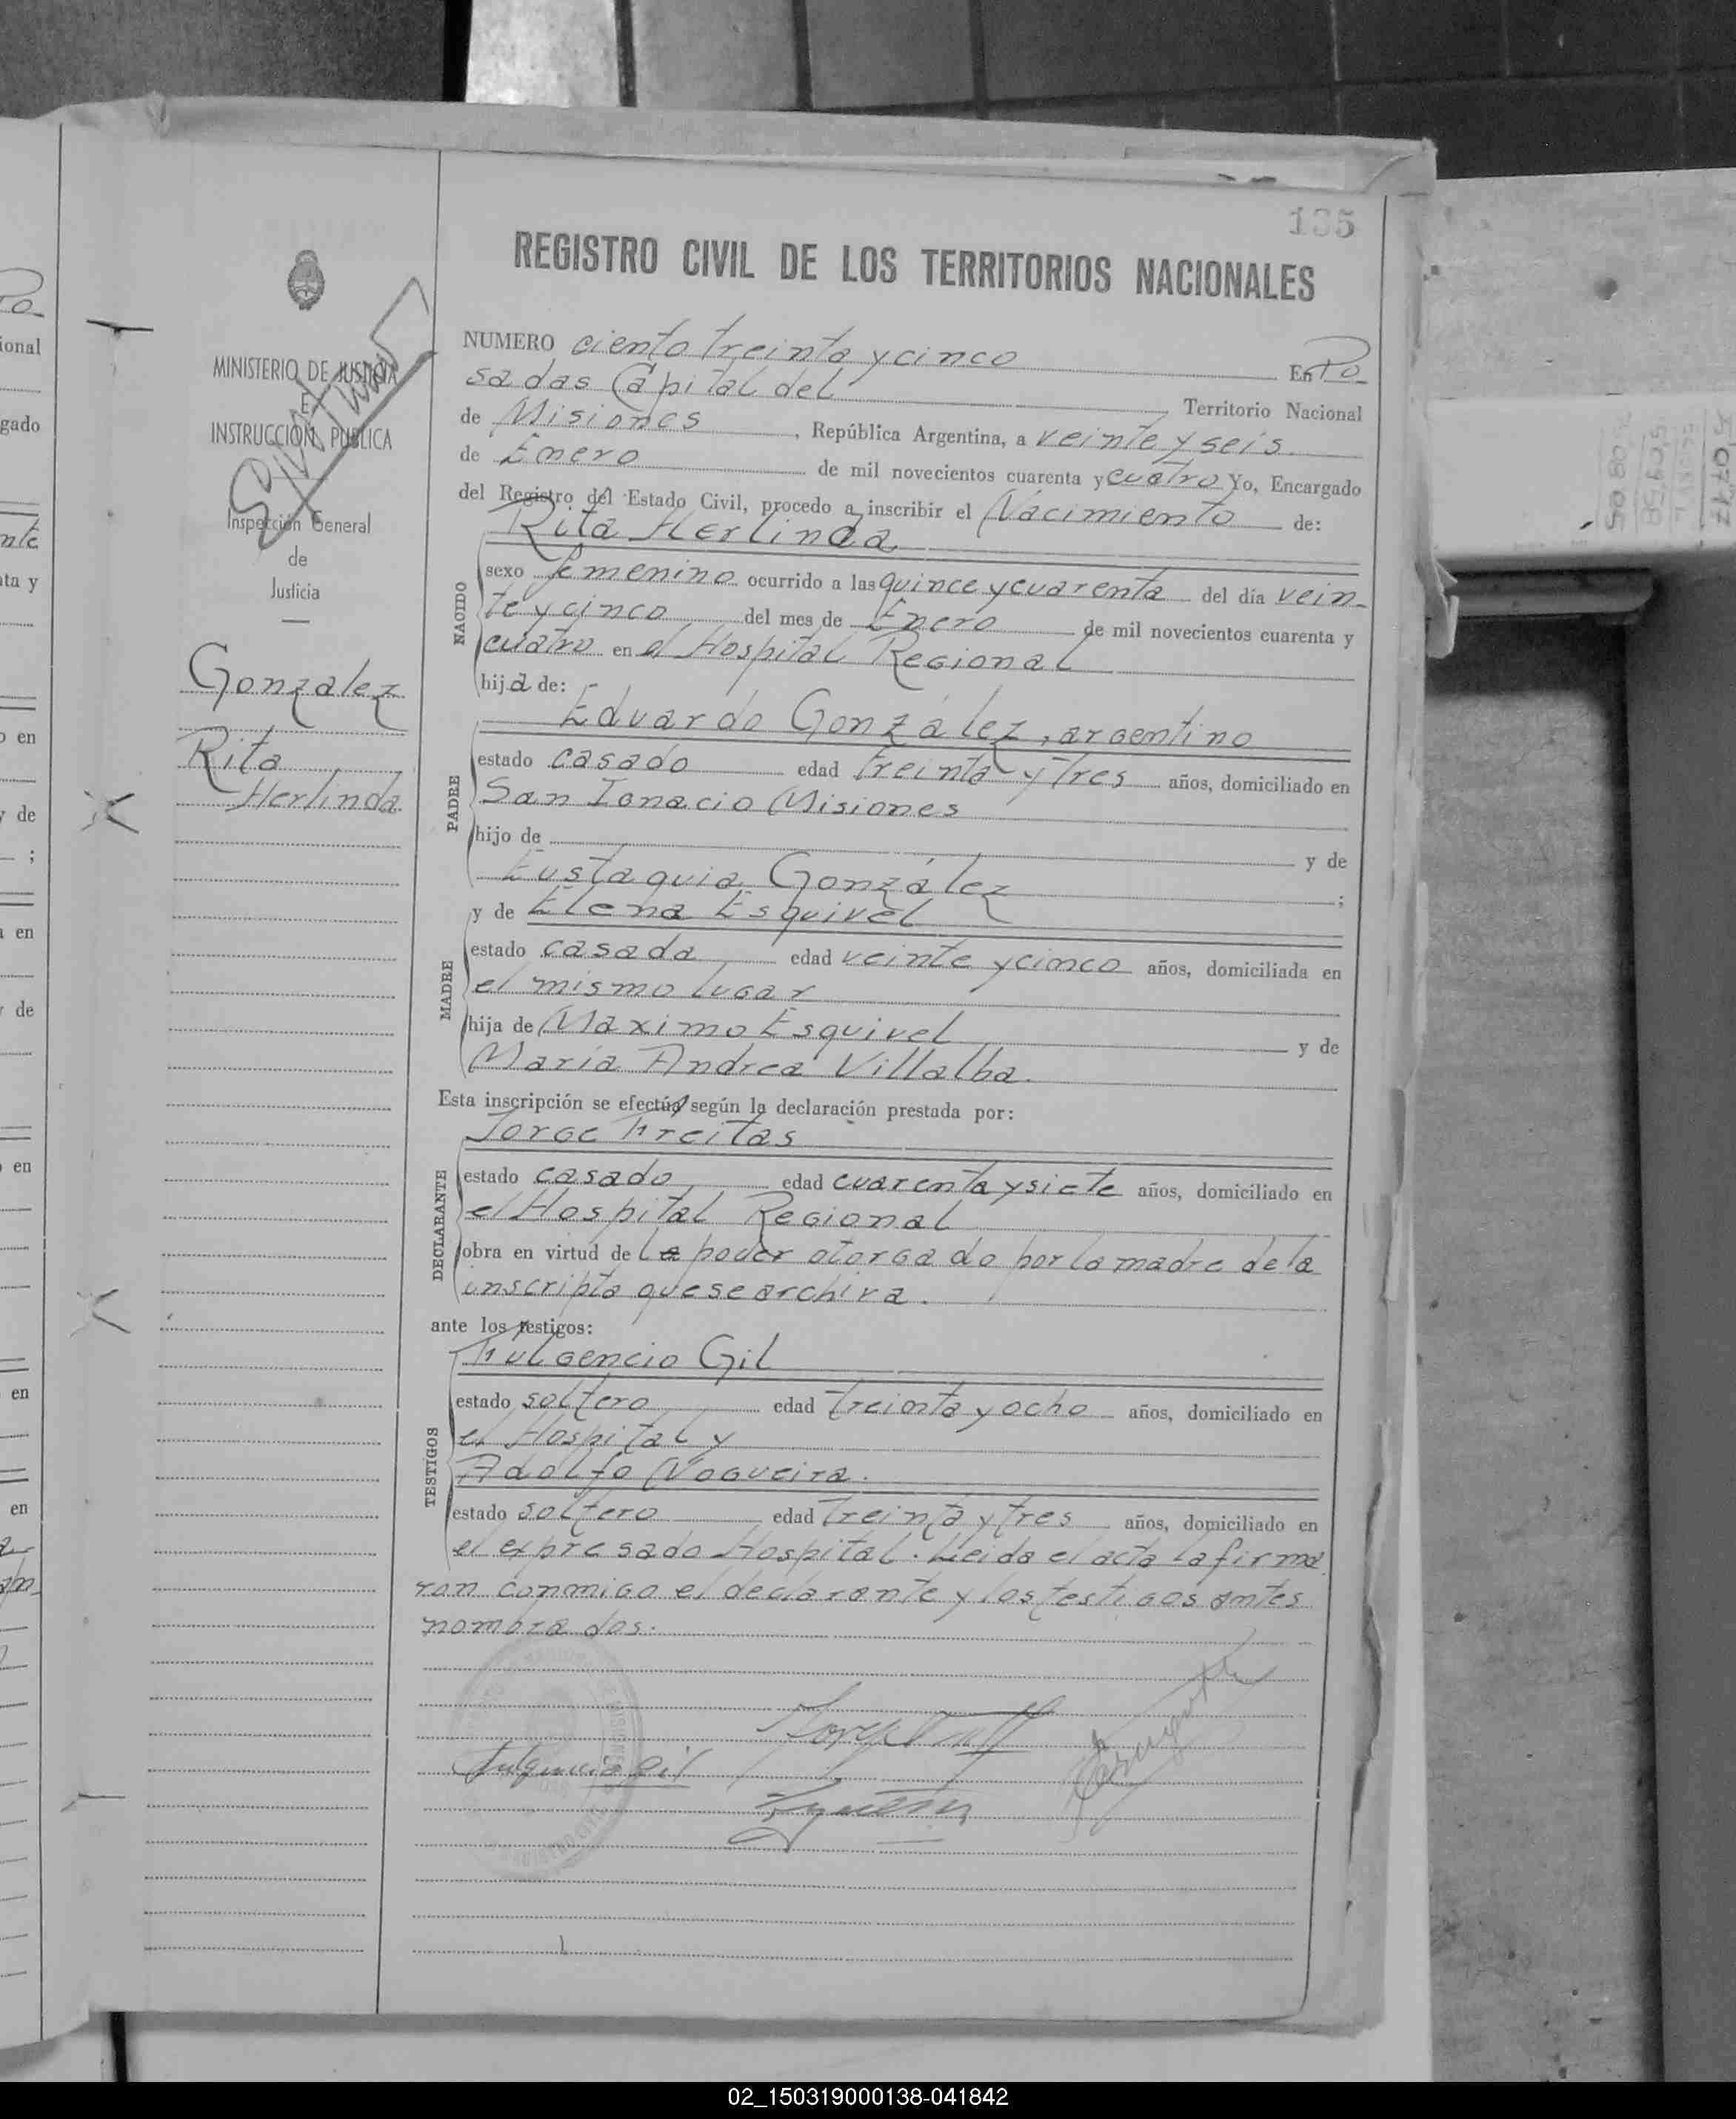 135
REGISTRO CIVIL DE LOS TERRITORIOS NACIONALES
MINISTERIO DE JUSTICIA
E
INSTRUCCIÓN PUBLICA
Inspección General
de
Justicia
Gonzalez
Rita
Herlinda
NUMERO ciento treinta y cinco En Po
sadas Capital del Territorio Nacional
de Misiones, República Argentina, a veinte y seis
de Enero de mil novecientos cuarenta y cuatro Yo, Encargado
del Registro del Estado Civil, procedo a inscribir el Nacimiento de:
Rita Herlinda
NACIDO
sexo femenino ocurrido a las quince y cuarenta del día vein-
te y cinco del mes de Enero de mil novecientos cuarenta y
cuatro en el Hospital Regional
hija de:
Eduardo González, argentino
PADRE
estado casado edad treinta y tres años, domiciliado en
San Ignacio Misiones
hijo de y de
Eustaquia González ;
y de Elena Esquivel
MADRE
estado casada edad veinte y cinco años, domiciliada en
el mismo lugar
hija de Maximo Esquivel y de
María Andrea Villalba.
Esta inscripción se efectúa según la declaración prestada por:
Jorge Freitas
DECLARANTE
estado casado edad cuarenta y siete años, domiciliado en
el Hospital Regional
obra en virtud de poder otorgado por la madre de la
inscripta que se archiva.
ante los testigos:
Fulgencio Gil
TESTIGOS
estado soltero edad treinta y ocho años, domiciliado en
el Hospital y
Adolfo Nogueira.
estado soltero edad treinta y tres años, domiciliado en
el expresado Hospital. Leida el acta la firma
ron conmigo el declarante y los testigos antes
nombrados.
Fulgencio Gil
02_150319000138-041842